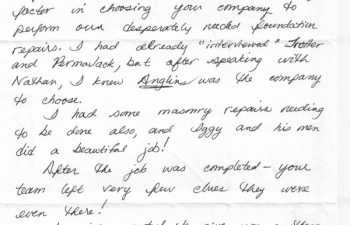 factor in choosing your company to
perform our desperately needed foundation
repairs. I had already "interviewed" Trotter
and PermaJack, but after speaking with
Nathan, I knew Anglins was the company
to choose.
I had some masonry repairs needing
to be done also, and Iggy and his men
did a beautiful job!
After the job was completed - your
team left very few clues they were
even there!